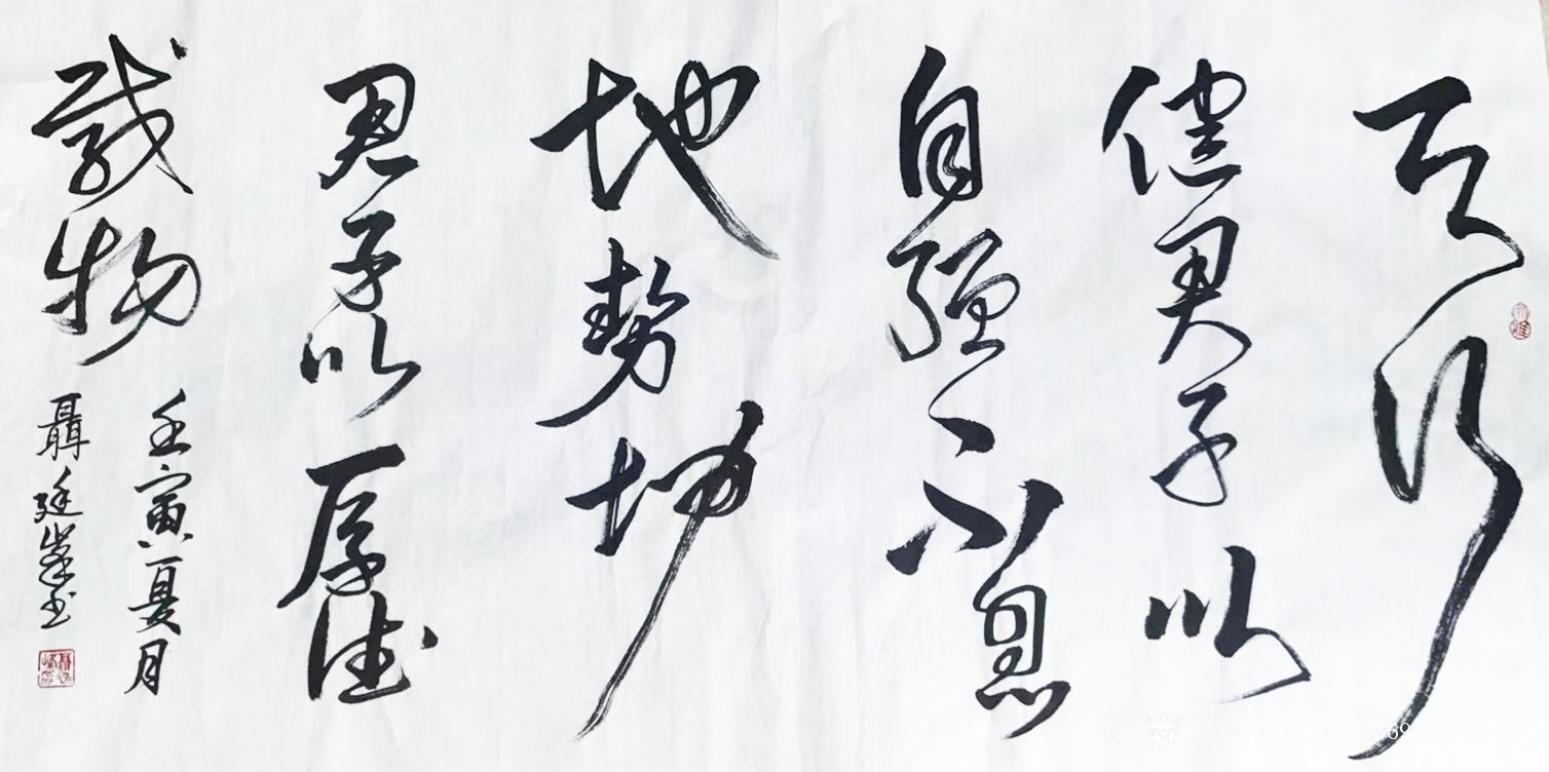 天行
健君子以
自强不息
地势坤
君子以厚德
载物
壬寅夏月
聶廷峯书